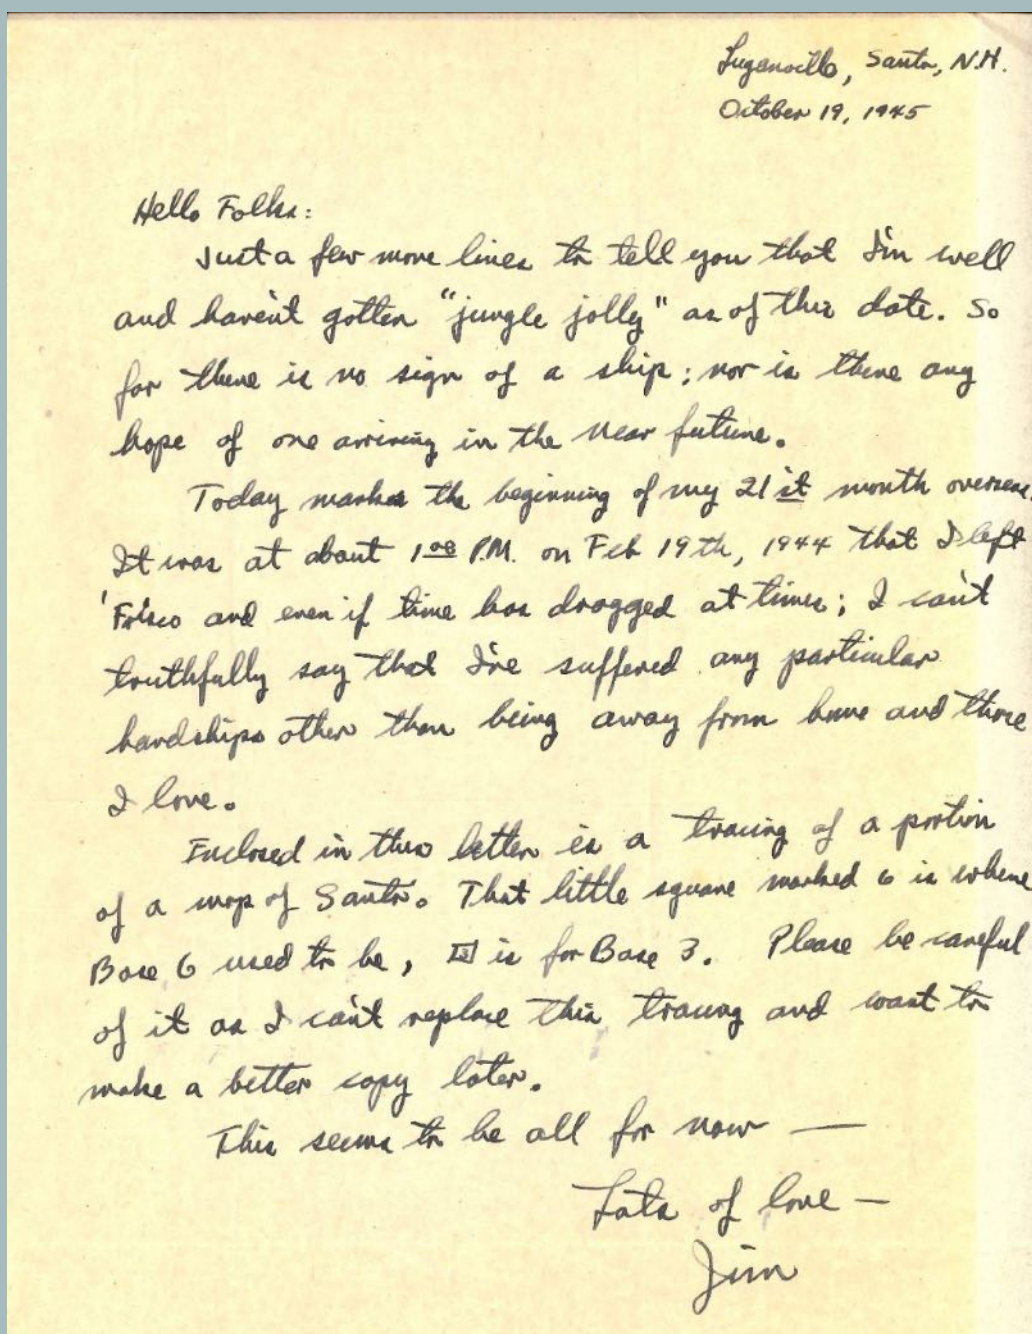 Luganville, Santo, N.H.
October 19, 1945
Hello Folks:
Just a few more lines to tell you that I'm well
and haven't gotten "jungle jolly" as of this date. So
far there is no sign of a ship; nor is there any
hope of one arriving in the near future.
Today marks the beginning of my 21st month overseas.
It was at about 1:00 P.M. on Feb 19th, 1944 that I left
'Frisco and even if time has dragged at times; I can't
truthfully say that I've suffered any particular
hardships other than being away from home and those
I love.
Enclosed in this letter is a tracing of a portion
of a map of Santo. That little square marked 6 is where
Base 6 used to be, 3 is for Base 3. Please be careful
of it as I can't replace this tracing and want to
make a better copy later.
This seems to be all for now —
Lots of love —
Jim